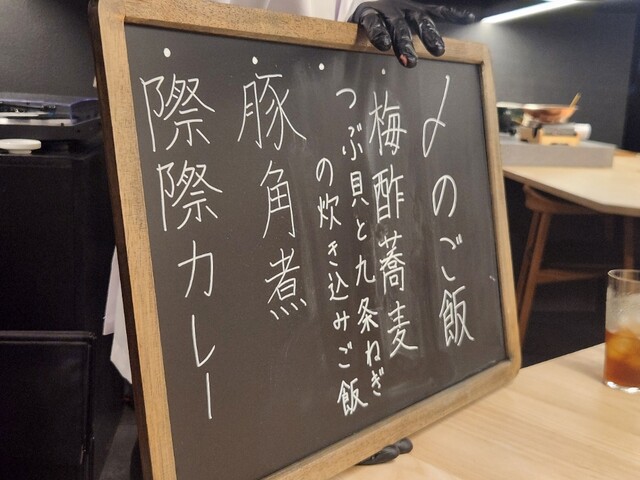 〆のご飯
・梅酢蕎麦
・つぶ貝と九条ねぎ
の炊き込みご飯
・豚角煮
・際際カレー